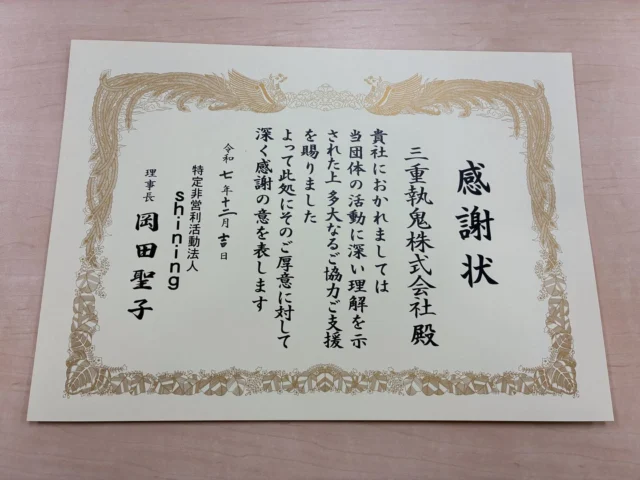 感謝状
三重執鬼株式会社 殿
貴社におかれましては
当団体の活動に深い理解を示
された上 多大なるご協力ご支援
を賜りました
よって此処にそのご厚意に対して
深く感謝の意を表します
令和七年十二月吉日
特定非営利活動法人
shining
理事長 岡田聖子